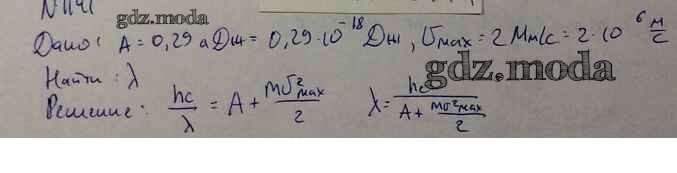 N 1141
gdz.moda
Дано: A = 0,29 аДж = 0,29·10⁻¹⁸ Дж, υmax = 2 Мм/с = 2·10⁶ м/с
Найти: λ
gdz.moda
Решение: hc/λ = A + mυ²max/2   λ = hc/(A + mυ²max/2)